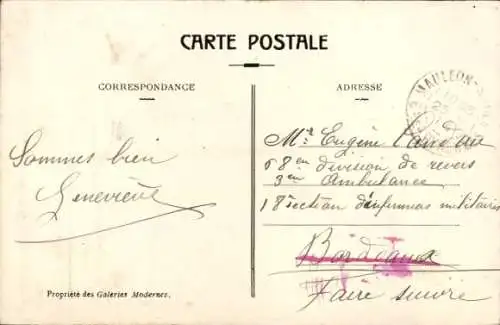 CARTE POSTALE
CORRESPONDANCE
ADRESSE
MAULEON
Sommes bien
Geneviève
Mr Eugène
68en division de reserv
3en Ambulance
18 section d'infirmiers militaires
Bordeaux
Faire suivre
Propriété des Galeries Modernes.